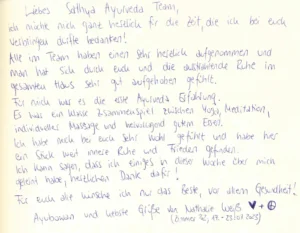 Liebes Sathya Ayurveda Team,
ich möchte mich ganz herzlich für die Zeit, die ich bei euch
verbringen durfte bedanken!
Alle im Team haben einen sehr herzlich aufgenommen und
man hat sich durch euch und die ausstrahlende Ruhe im
gesamten Haus sehr gut aufgehoben gefühlt.
Für mich war es die erste Ayurveda Erfahrung.
Es war ein klasse Zusammenspiel zwischen Yoga, Meditation,
individueller Massage und hervorragend gutem Essen.
Ich habe mich bei euch sehr wohl gefühlt und habe hier
ein Stück weit innere Ruhe und Frieden gefunden.
Ich kann sagen, dass ich einiges in dieser Woche über mich
gelernt habe, herzlichen Dank dafür!
Für euch alle wünsche ich nur das Beste, vor allem Gesundheit!
Ayubowan und liebste Grüße von Nathalie Weiß ♥ +
(Zimmer 32, 17.-23.)